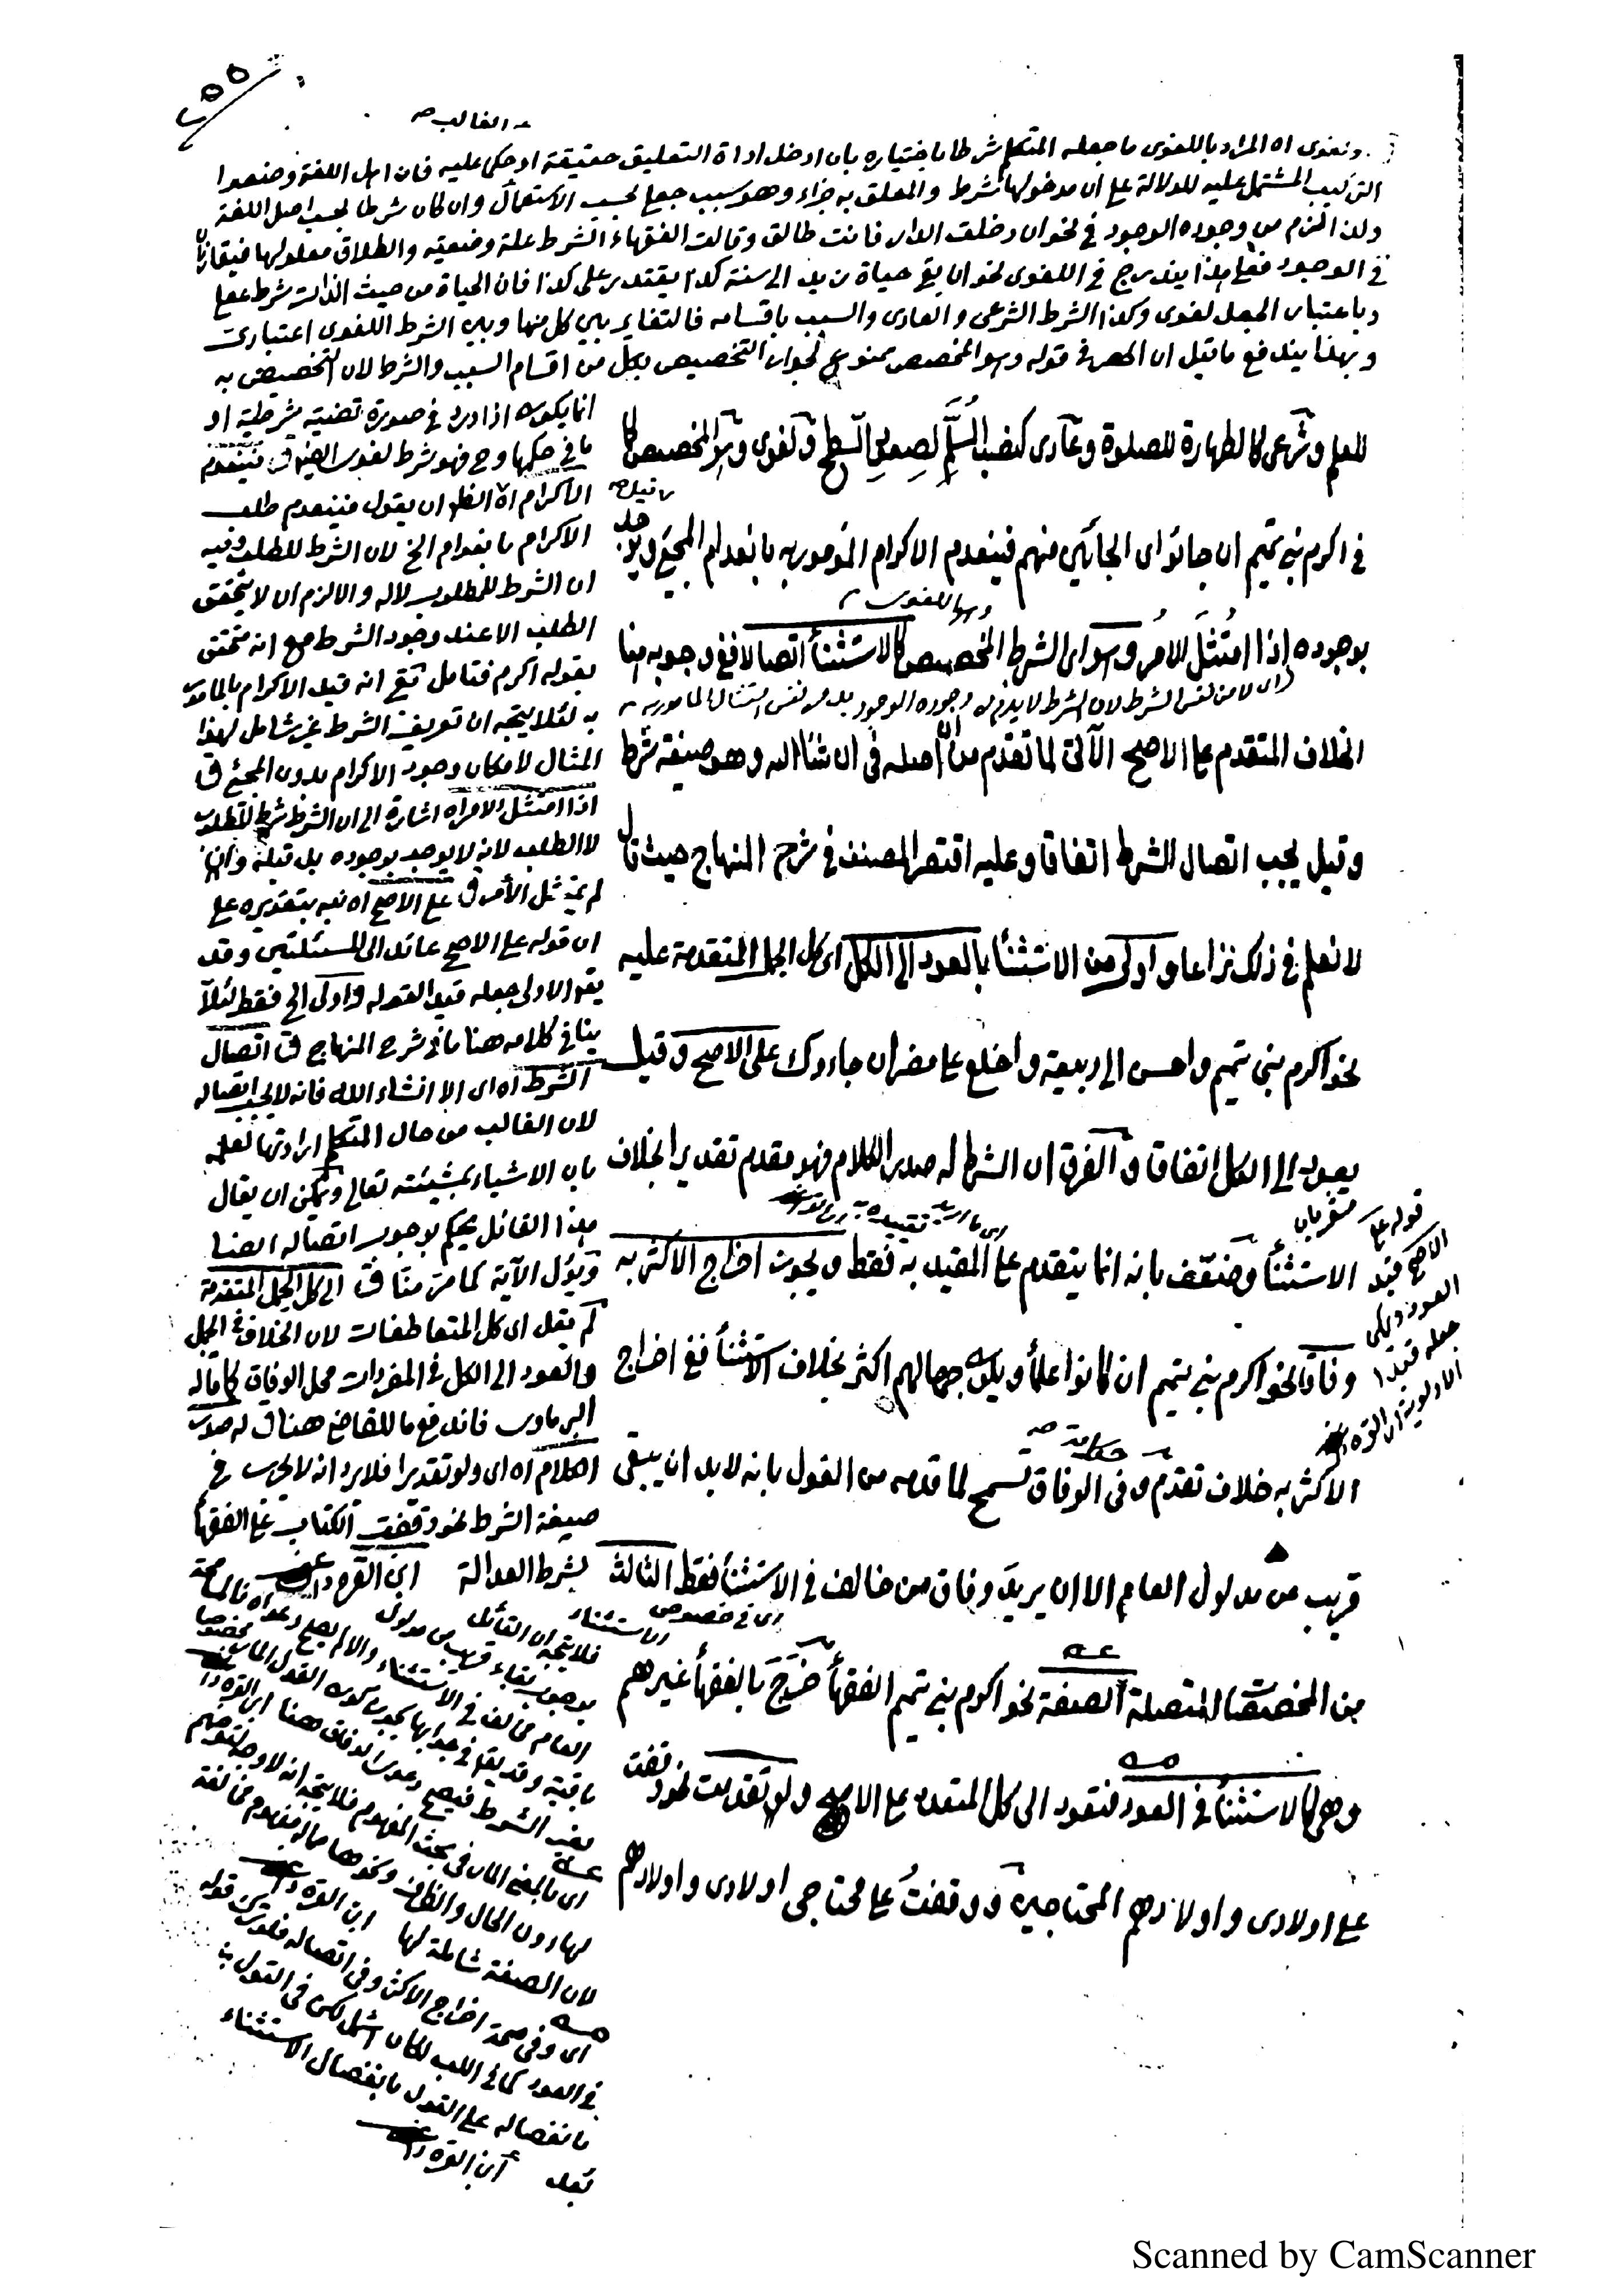 ٢٥٥
الغالب صه
ولغوى اه المراد باللغوى ما جعله المتكلم شرطا باختياره بان ادخل اداة التعليق حقيقة او حكما عليه فان اهل اللغة وضعوا
التركيب المشتمل عليه للدلالة على ان مدخولها شرط والمعلق به جزاء وهو سبب جعلى بحسب الاستعمال وان كان شرطا بحسب اصل اللغة
ولذا لزم من وجوده الوجود فى نحو ان دخلت الدار فانت طالق وقالت الفقهاء الشرط علة وضعية والطلاق معلولها فيتقارنان
فى الوجود فعلى هذا يندرج فى اللغوى نحو ان بقى حياة زيد الى سنة كذا يقتدر على كذا فان الحياة من حيث الذات شرط عقلى
وباعتبار الجعل لغوى وكذا الشرط الشرعى والعادى والسبب باقسامه فالتغاير بين كل منها وبين الشرط اللغوى اعتبارى
وبهذا يندفع ما قيل ان الحصر فى قوله وهو المخصص ممنوع لجواز التخصيص بكل من اقسام السبب والشرط لان التخصيص به
للعلم وشرعى كالطهارة للصلوة وعادى كنصب السلم لصعود السطح ولغوى وهو المخصص كما
فى اكرم بنى تميم ان جاؤا اى الجائين منهم فينعدم الاكرام المأمور به بانعدام المجئ ويوجد
وهو اللغوى
بوجوده اذا امتثل الامر وهو اى الشرط المخصص كالاستثنأ اتصالا ففى وجوبه هنا
اى لا من نفس الشرط لان الشرط لا يلزم من وجوده الوجود بل من نفس امتثال المأمور به
الخلاف المتقدم على الاصح الآتى لما تقدم من ان اصله فى ان شاء الله وهو صيغة شرط
وقيل يجب اتصال الشرط اتفاقا وعليه اقتصر المصنف فى شرح المنهاج حيث قال
لا نعلم فى ذلك نزاعا واولى من الاستثنأ بالعود الى الكل اى كل الجمل المتقدمة عليه
نحو اكرم بنى تميم واحسن الى ربيعة واخلع على مضر ان جاءوك على الاصح وقيل
يعود الى الكل اتفاقا والفرق ان الشرط له صدر الكلام فهو مقدم تقديرا بخلاف
الاستثنأ وضعّف بانه انما يتقدم على المقيد به فقط ويجوز اخراج الاكثر به
وفاقا نحو اكرم بنى تميم ان كانوا علمأ ويكون جهالهم اكثر بخلاف الاستثنأ ففى اخراج
حكاية صه
الاكثر به خلاف تقدم وفى الوفاق تسمح لما قدمه من القول بانه لا بد ان يبقى
قريب من مدلول العام الا ان يريد وفاق من خالف فى الاستثنأ فقط الثالث
اى فى خصوص الاستثناء
من المخصصات المتصلة الصفة نحو اكرم بنى تميم الفقهأ خرج بالفقهأ غيرهم
وهى كالاستثنأ فى العود فتعود الى كل المتعدد على الاصح ولو تقدمت نحو وقفت
على اولادى واولادهم المحتاجين ووقفت على محتاجى اولادى واولادهم
قوله على
الاصح قيد
العود ويمكن
جعله قيد
الاولوية ابن القره
انما يكون اذا ورد فى صورة قضية شرطية او
ما فى حكمها وح فهو شرط لغوى ايضا ق فينعدم
الاكرام اه الظ ان يقول فينعدم طلب
الاكرام بانعدام الخ لان الشرط للطلب وفيه
ان الشرط للمطلوب لا له والا لزم ان لا يتحقق
الطلب الا عند وجود الشرط مع انه متحقق
بقوله اكرم فتامل نعم انه قيد الاكرام بالمأمور
به لئلا يتجه ان تعريف الشرط غير شامل لهذا
المثال لامكان وجود الاكرام بدون المجئ ق
اذا امتثل الامر اه اشارة الى ان الشرط شرط للمطلوب
لا الطلب لانه لا يوجد بوجوده بل قبله وان
لم يمتثل الأمر ق على الاصح اه نبه بتقديره على
ان قوله على الاصح عائد الى المسئلتين وقد
يقع الاولى جعله قيدا لقوله واولى الخ فقط لئلا
ينافى كلامه هنا ما فى شرح المنهاج ق اتصال
الشرط اه اى الا انشاء الله فانه لا يجب اتصاله
لان الغالب من حال المتكلم ارادتها لعلمه
بان الاشياء بمشيئته تعالى ويمكن ان يقال
هذا القائل يحكم بوجوب اتصاله ايضا
ويؤل الآية كما مر منا ق الى كل الجمل المتقدمة
لم يقل اى كل المتعاطفات لان الخلاف فى الجمل
والعود الى الكل فى المفردات محل الوفاق كما قاله
البرماوى فاندفع ما للقاضى هنا ق له صدر
الكلام اه اى ولو تقديرا فلا يرد انه لا يجرى فى
صيغة الشرط نحو وقفت الكتاب على الفقهأ
بشرط العدالة ابن القره داغى
فلا يتجه ان القائل
بوجوب بقاء قريب من مدلول
العام مخالف فى الاستثناء
باقية وقد يقع فى جوابها يجوز كون القول المار مخصوصا
بغير الشرط فيصح دعوى الوفاق هنا ابن القره داغى
اى بالمعنى المار فى بحث المفهوم فلا يتجه انه لا وجه لتعرضهم
لها دون الحال والظرف ونحوهما مما له مفهوم مخالفة
لان الصفة شاملة لها ابن القره داغى
اى وفى صحة اخراج الاكثر وفى اتصاله فلو ترك قوله
فى العود كما فى اللب لكان اشمل لكن فى القول
بانفصاله على القول بانفصال الاستثناء
بُعد ابن القره داغى
Scanned by CamScanner